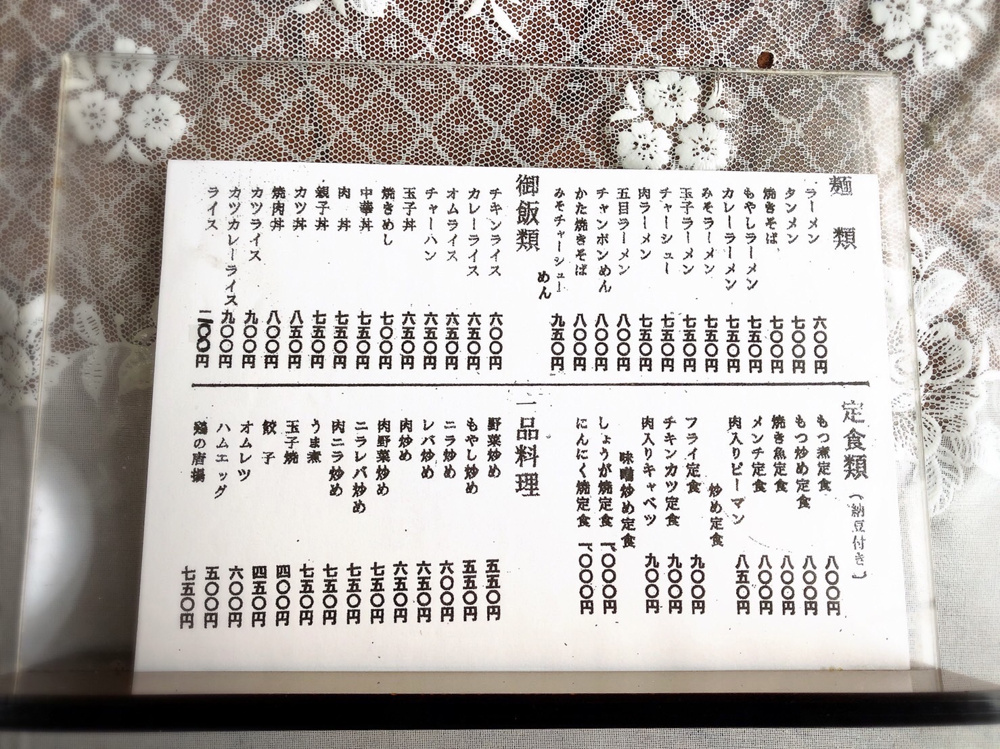 麺類
ラーメン 六〇〇円
タンメン 七〇〇円
焼きそば 七〇〇円
もやしラーメン 七五〇円
カレーラーメン 七五〇円
みそラーメン 七五〇円
玉子ラーメン 七五〇円
チャーシュー 七五〇円
肉ラーメン 七五〇円
五目ラーメン 八〇〇円
チャンポンめん 八〇〇円
かた焼きそば 八〇〇円
みそチャーシュー
めん 九五〇円
御飯類
チキンライス 六〇〇円
カレーライス 六五〇円
オムライス 六五〇円
チャーハン 六五〇円
玉子丼 六五〇円
焼きめし 七〇〇円
中華丼 七五〇円
肉丼 七五〇円
親子丼 七五〇円
カツ丼 八五〇円
焼肉丼 八〇〇円
カツライス 九〇〇円
カツカレーライス 九〇〇円
ライス 二〇〇円
定食類(納豆付き)
もつ煮定食 八〇〇円
もつ炒め定食 八〇〇円
焼き魚定食 八〇〇円
メンチ定食 八〇〇円
肉入りピーマン 八五〇円
炒め定食
フライ定食 九〇〇円
チキンカツ定食 九〇〇円
肉入りキャベツ 九〇〇円
味噌炒め定食
しょうが焼定食 一、〇〇〇円
にんにく焼定食 一、〇〇〇円
一品料理
野菜炒め 五五〇円
もやし炒め 五五〇円
ニラ炒め 六〇〇円
レバ炒め 六五〇円
肉炒め 六五〇円
肉野菜炒め 七五〇円
ニラレバ炒め 七五〇円
肉ニラ炒め 七五〇円
うま煮 七五〇円
玉子焼 四〇〇円
餃子 四五〇円
オムレツ 六〇〇円
ハムエッグ 五〇〇円
鶏の唐揚 七五〇円